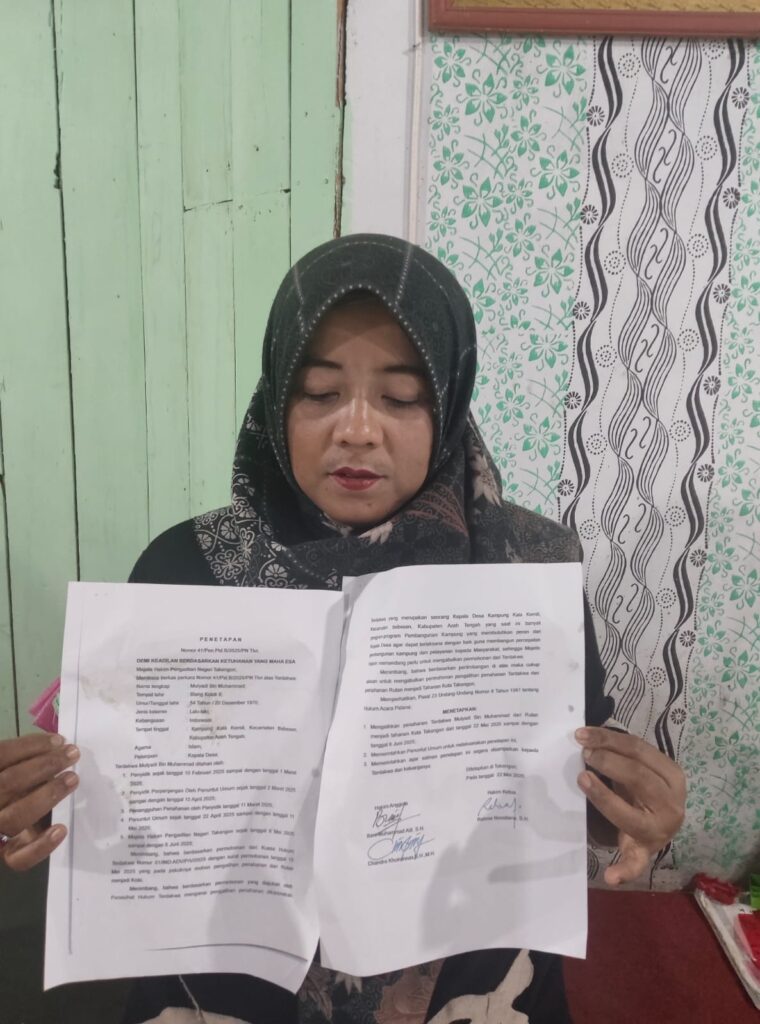 PENETAPAN
Nomor 41/Pen.Pid.B/2025/PN Tkn
DEMI KEADILAN BERDASARKAN KETUHANAN YANG MAHA ESA
Majelis Hakim Pengadilan Negeri Takengon;
Membaca berkas perkara Nomor 41/Pid.B/2025/PN Tkn atas Terdakwa:
Nama lengkap : Mulyadi Bin Muhammad;
Tempat lahir :
Umur/Tanggal lahir : 54 Tahun / 20 Desember 1970;
Jenis kelamin : Laki-laki;
Kebangsaan : Indonesia;
Tempat tinggal : Kampung Kala Kemili, Kecamatan Bebesen,
Kabupaten Aceh Tengah;
Agama : Islam;
Pekerjaan : Kepala Desa;
Terdakwa Mulyadi Bin Muhammad ditahan oleh:
1. Penyidik sejak tanggal 10 Februari 2025 sampai dengan tanggal 1 Maret
2025;
2. Penyidik Perpanjangan Oleh Penuntut Umum sejak tanggal 2 Maret 2025
sampai dengan tanggal 10 April 2025;
3. Penangguhan Penahanan oleh Penyidik tanggal 11 Maret 2025;
4. Penuntut Umum sejak tanggal 22 April 2025 sampai dengan tanggal 11
Mei 2025;
5. Majelis Hakim Pengadilan Negeri Takengon sejak tanggal 8 Mei 2025
sampai dengan 6 Juni 2025;
Menimbang, bahwa berdasarkan permohonan dari Kuasa Hukum
Terdakwa Nomor dengan surat permohonan tanggal
Mei 2025 yang pada pokoknya pengalihan penahanan dari Rutan
menjadi Kota;
Menimbang, bahwa berdasarkan permohonan yang diajukan oleh
Penasihat Hukum Terdakwa mengenai pengalihan penahanan dikarenakan
Terdakwa yang merupakan seorang Kepala Desa Kampung Kala Kemili,
Kecamatan Bebesen, Kabupaten Aceh Tengah yang saat ini banyak
program-program Pembangunan Kampung yang membutuhkan peran dari
Kepala Desa agar dapat terlaksana dengan baik guna membangun percepatan
pembangunan kampung dan pelayanan kepada Masyarakat, sehingga Majelis
Hakim memandang perlu untuk mengabulkan permohonan dari Terdakwa;
Menimbang, bahwa berdasarkan pertimbangan di atas maka cukup
alasan untuk mengabulkan permohonan pengalihan penahanan Terdakwa dari
penahanan Rutan menjadi Tahanan Kota Takengon;
Memperhatikan, Pasal 23 Undang-Undang Nomor 8 Tahun 1981 tentang
Hukum Acara Pidana;
MENETAPKAN:
1. Mengalihkan penahanan Terdakwa Mulyadi Bin Muhammad dari Rutan
menjadi tahanan Kota Takengon dari tanggal 22 Mei 2025 sampai dengan
tanggal 6 Juni 2025;
2. Memerintahkan Penuntut Umum untuk melaksanakan penetapan ini;
3. Memerintahkan agar salinan penetapan ini segera disampaikan kepada
Terdakwa dan keluarganya;
Ditetapkan di Takengon;
Pada tanggal 22 Mei 2025
Hakim Anggota Hakim Ketua
Muhammad Alfi, S.H. Rahma Novatiana, S.H.
Chandra Khoirunnas, S.H.,M.H.